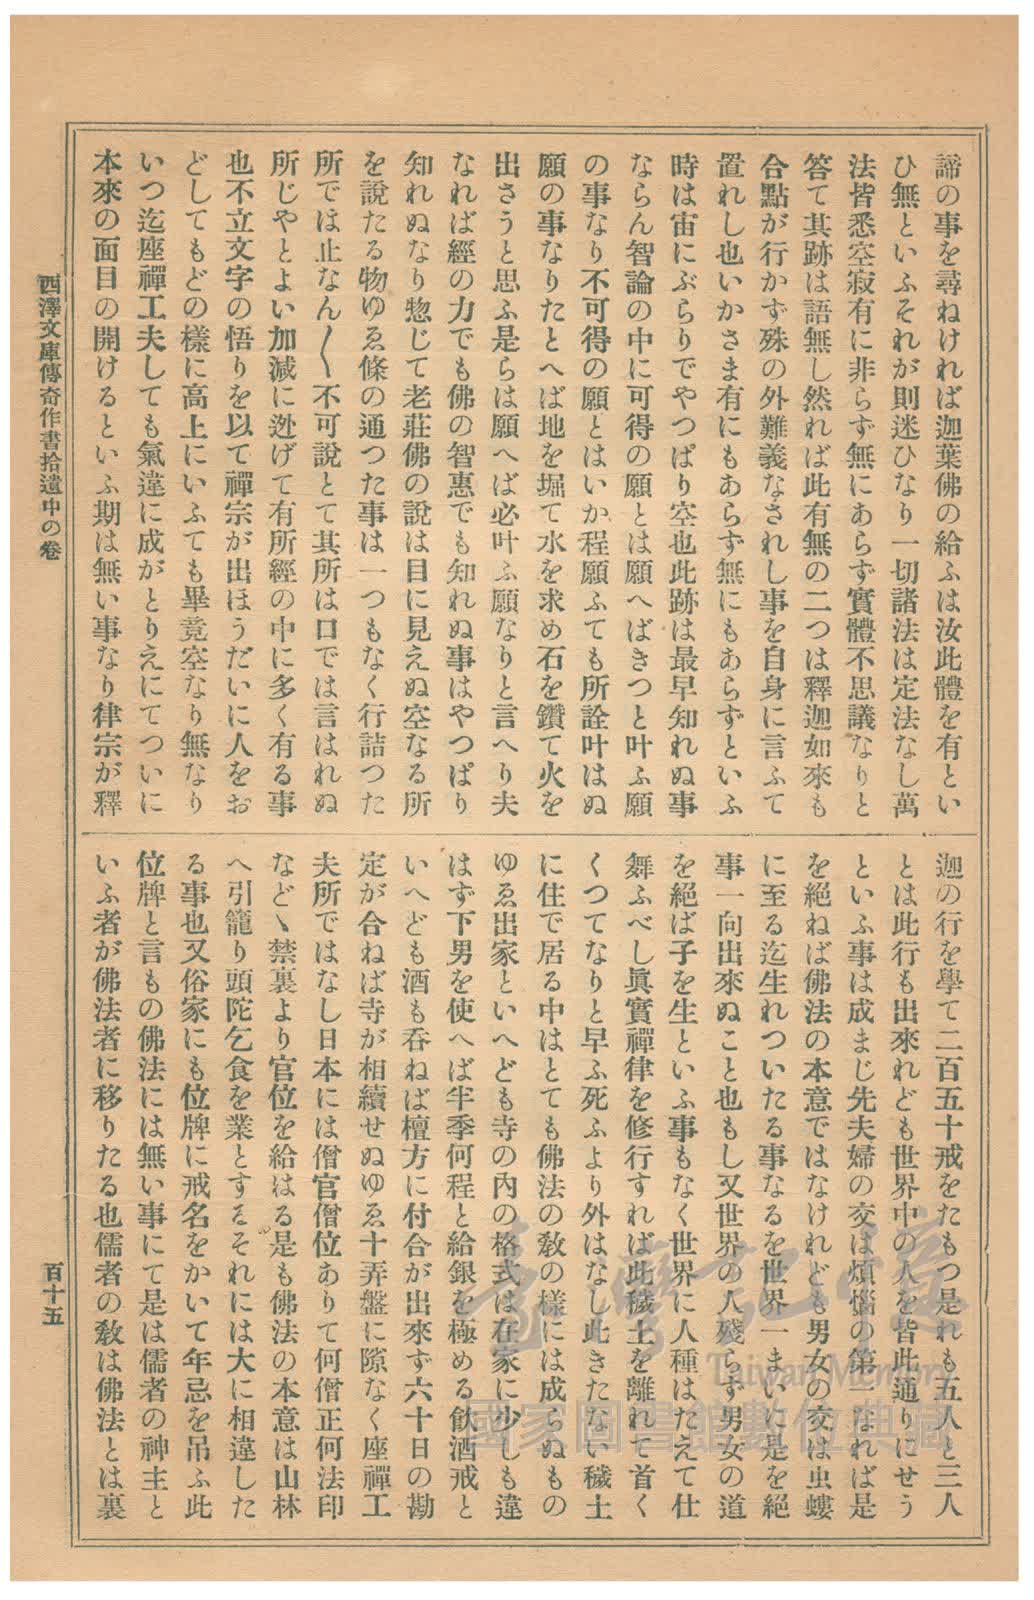 諦の事を尋ねければ迦葉佛の給ふは汝此體を有とい
ひ無といふそれが則迷ひなり一切諸法は定法なし萬
法皆悉空寂有に非らず無にあらず實體不思議なりと
答て其跡は語無し然れば此有無の二つは釋迦如來も
合點が行かず殊の外難義なされし事を自身に言ふて
置れし也いかさま有にもあらず無にもあらずといふ
時は宙にぶらりでやつぱり空也此跡は最早知れぬ事
ならん智論の中に可得の願とは願へばきつと叶ふ願
の事なり不可得の願とはいか程願ふても所詮叶はぬ
願の事なりたとへば地を堀て水を求め石を鑽て火を
出さうと思ふ是らは願へば必叶ふ願なりと言へり夫
なれば經の力でも佛の智惠でも知れぬ事はやつぱり
知れぬなり惣じて老莊佛の說は目に見えぬ空なる所
を說たる物ゆゑ條の通つた事は一つもなく行詰つた
所では止なん〳〵不可說とて其所は口では言はれぬ
所じやとよい加減に迯げて有所經の中に多く有る事
也不立文字の悟りを以て禪宗が出ほうだいに人をお
どしてもどの樣に高上にいふても畢竟空なり無なり
いつ迄座禪工夫しても氣違に成がとりえにてついに
本來の面目の開けるといふ期は無い事なり律宗が釋
迦の行を學て二百五十戒をたもつ是れも五人と三人
とは此行も出來れども世界中の人を皆此通りにせう
といふ事は成まじ先夫婦の交は煩惱の第一なれば是
を絕ねば佛法の本意ではなけれども男女の交は虫螻
に至る迄生れついたる事なるを世界一まいに是を絕
事一向出來ぬこと也もし又世界の人殘らず男女の道
を絕ば子を生といふ事もなく世界に人種はたえて仕
舞ふべし眞實禪律を修行すれば此穢土を離れて首く
くつてなりと早ふ死ふより外はなし此きたない穢土
に住で居る中はとても佛法の敎の樣には成らぬもの
ゆゑ出家といへども寺の內の格式は在家に少しも違
はず下男を使へば半季何程と給銀を極める飮酒戒と
いへども酒も呑ねば檀方に付合が出來ず六十日の勘
定が合ねば寺が相續せぬゆゑ十弄盤に隙なく座禪工
夫所ではなし日本には僧官僧位ありて何僧正何法印
など〻禁裏より官位を給はる是も佛法の本意は山林
へ引籠り頭陀乞食を業とするそれには大に相違した
る事也又俗家にも位牌に戒名をかいて年忌を吊ふ此
位牌と言もの佛法には無い事にて是は儒者の神主と
いふ者が佛法者に移りたる也儒者の敎は佛法とは裏
西澤文庫傳奇作書拾遺中の卷
百十五
臺灣記憶
Taiwan Memory
國家圖書館數位典藏